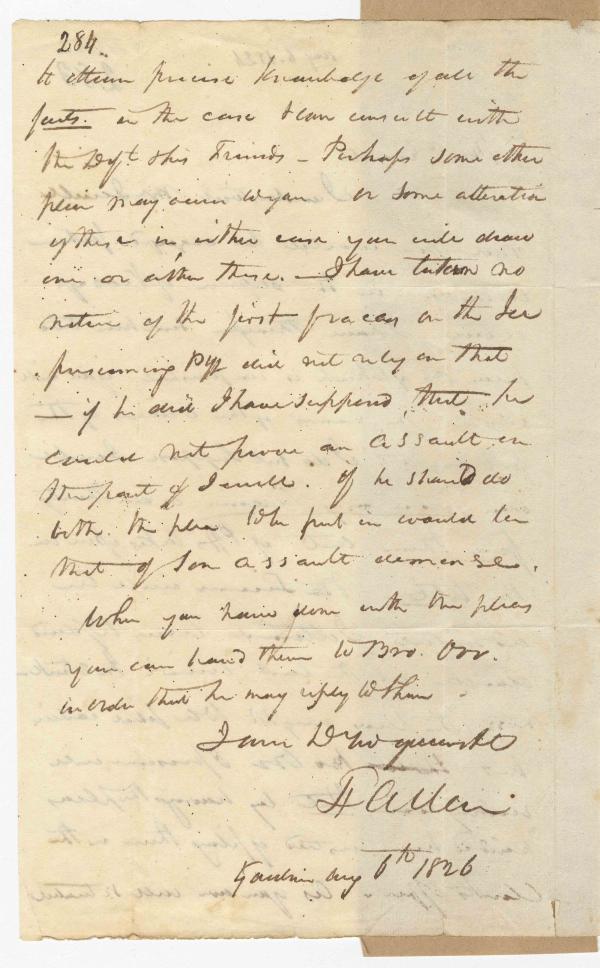 284.
to attain precise knowledge of all the
facts. in the case & can consult with
the Deft & his Friends – Perhaps some other
plea may occur to you or some alteration
of these in either case you will draw
one or other these. – I have taken no
notice of the first fracas on the
presuming Plff did not rely on that
– if he did I have supposed that he
could not prove an assault on
the part of . If he should do
both the plea to be put in would be
that of Son assault demesne.
When you have done with the pleas
you can hand them to Bro. Orr.
in order that he may reply to them –
I am Dr Sir yours
F Allen
Augt 6th 1826